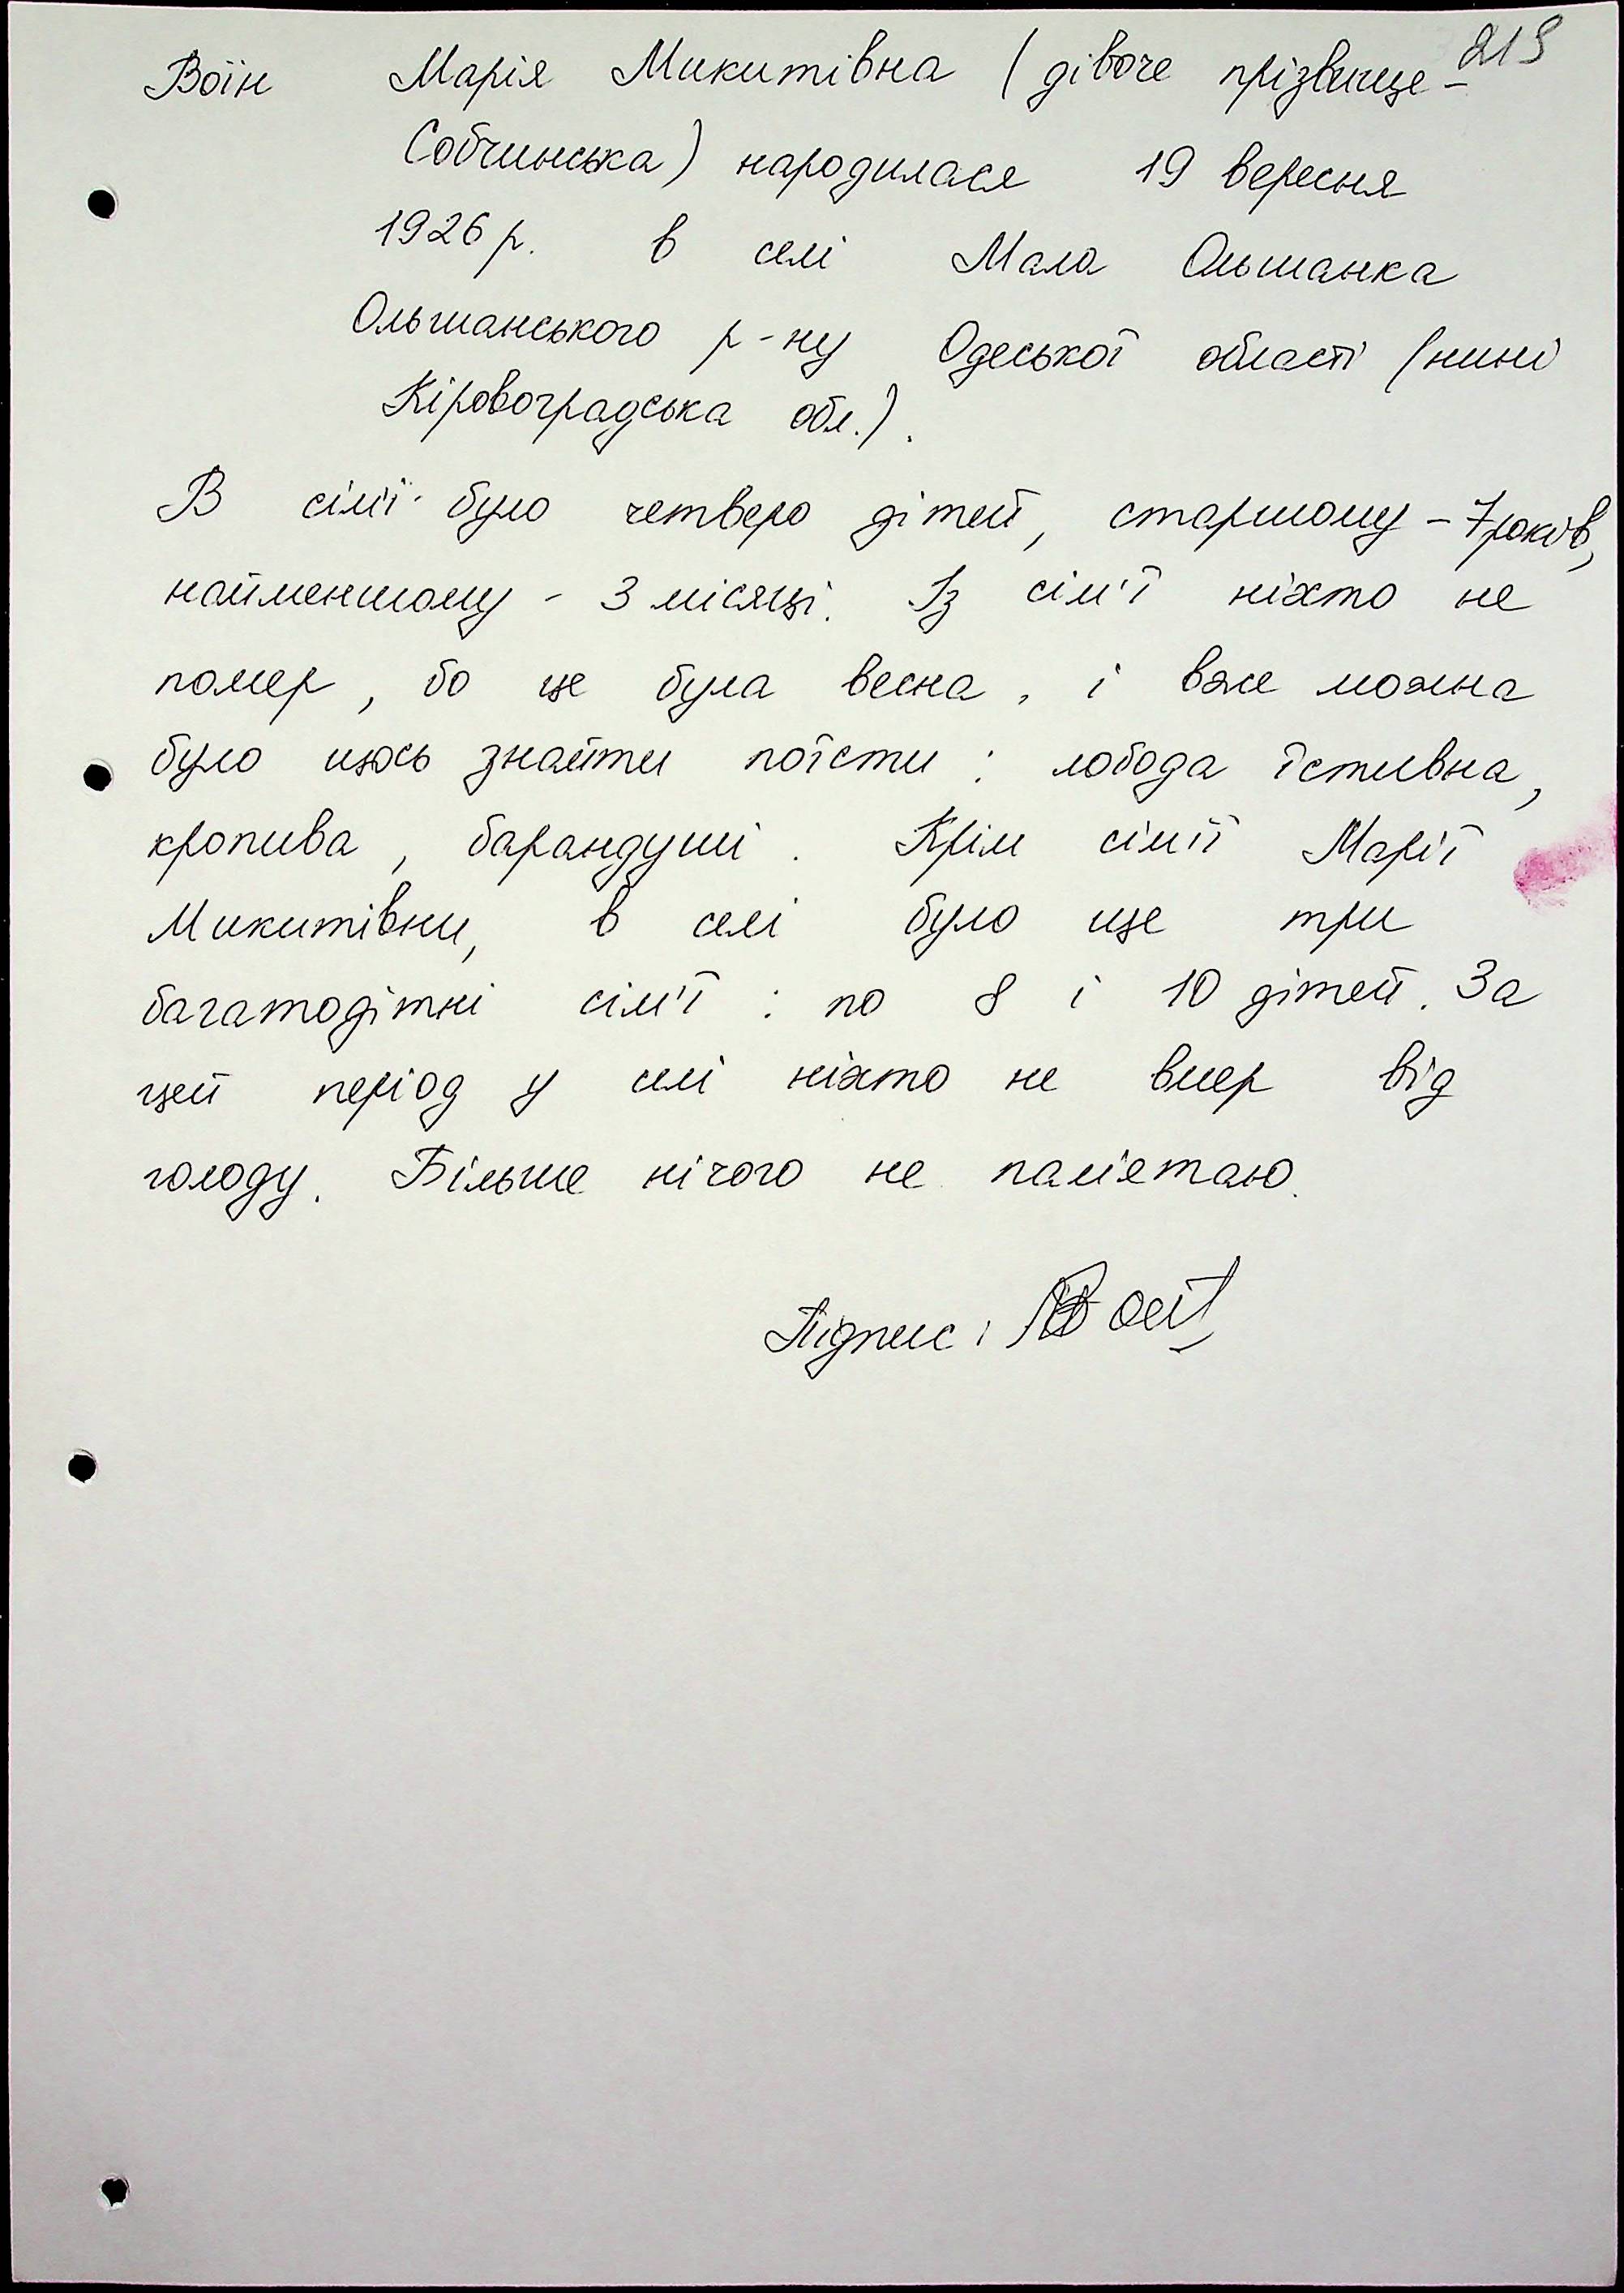 219
Воїн Марія Микитівна (дівоче прізвище -
Собчинська) народилася 19 вересня
1926 р. в селі Мала Ольшанка
Ольшанського р-ну Одеської області (нині
Кіровоградська обл.).
В сім'ї було четверо дітей, старшому - 7 років,
найменшому - 3 місяці. Із сім'ї ніхто не
помер, бо це була весна, і вже можна
було щось знайти поїсти: лобода їстивна,
кропива, барандуші. Крім сім'ї Марії
Микитівни, в селі було ще три
багатодітні сім'ї: по 8 і 10 дітей. За
цей період у селі ніхто не вмер від
голоду. Більше нічого не пам'ятаю.
Підпис: